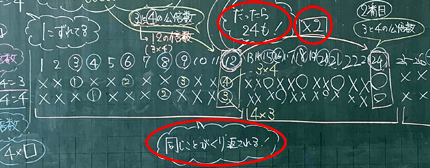 たったら
24も
×2
2番目
3と4の公倍数
3と4の公倍数
1こずれてる
12の倍数
(3×4)
1 2 3 4 5 6 7 8 9 10 11 12 13 14 15 16 17 18 19 20 21 22 23 24 25 26
3×4
4×3
4-3
4-4
倍数
4×□
同じことがくり返されてる!